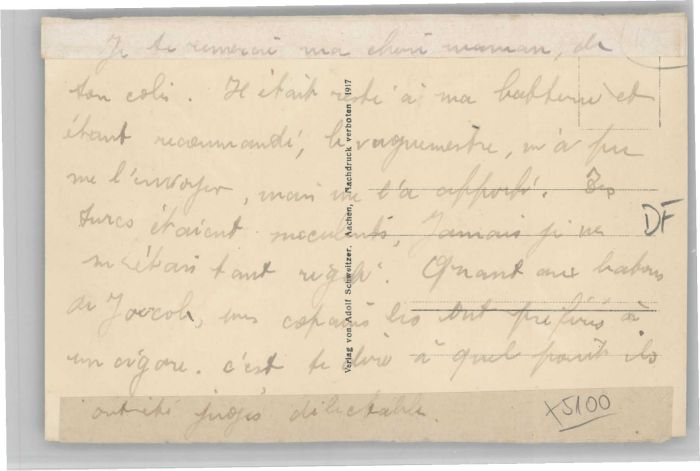 Je te remercie ma chérie maman, de
ton colis. Il était resté à ma batterie et
étant recommandé, le vaguemestre, n'a pu
me l'envoyer, mais me l'a apporté. Les
turcs étaient succulents, Jamais je ne
m'étais tant régalé. Quant aux batons
de Jacob, mes copains les ont préférés à
un cigare. c'est te dire à quel point ils
ont été jugés délectable.
Verlag von Adolf Schweitzer, Aachen, Nachdruck verboten 1917
DF
5100